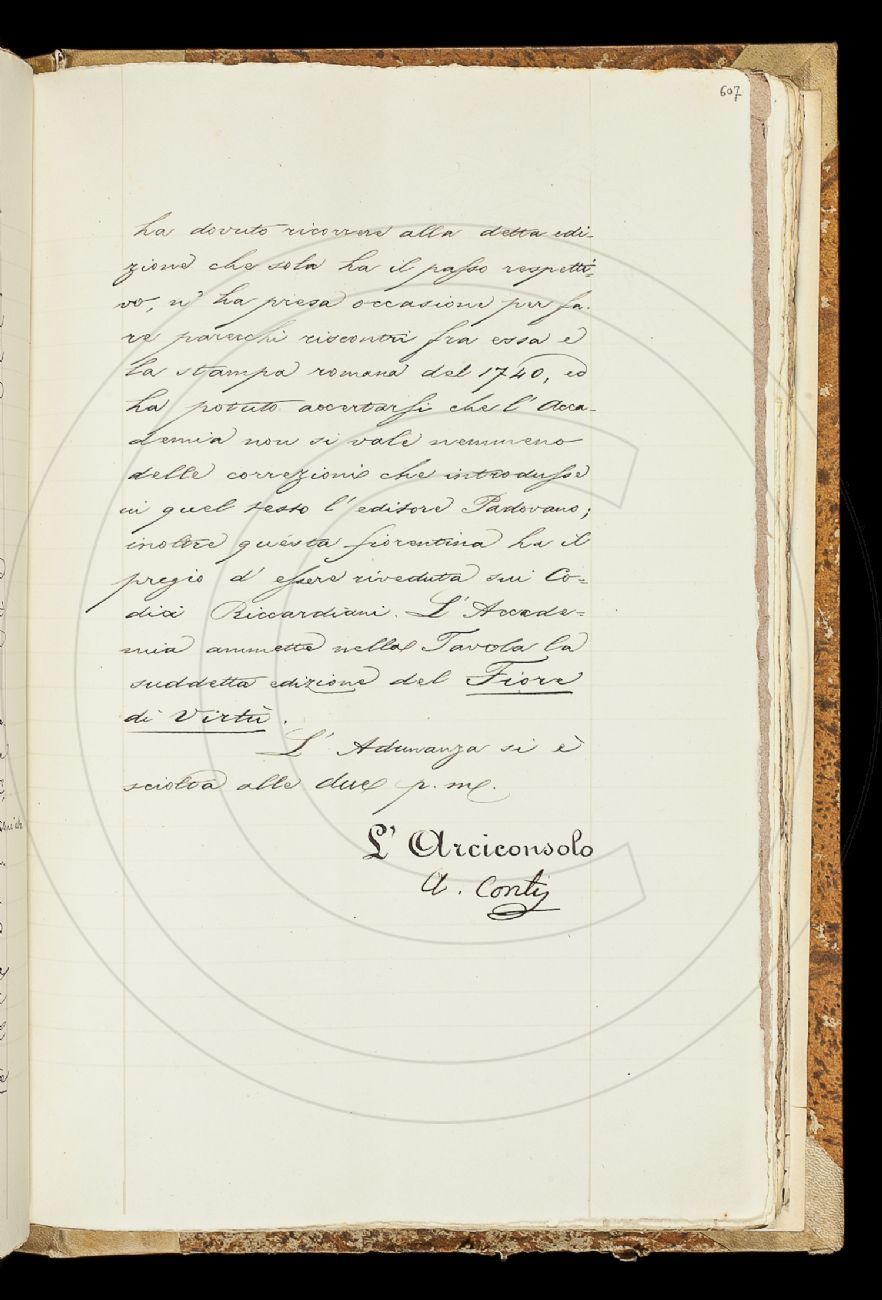 607
ha dovuto ricorrere alla detta edi-
zione che sola ha il passo respetti-
vo, n' ha presa occasione per fa-
re parecchi riscontri fra essa e
la stampa romana del 1740, ed
ha potuto accertarsi che l' Acca-
demia non si vale nemmeno
delle correzioni che introdusse
in quel testo l' editore Padovano;
inoltre questa fiorentina ha il
pregio d' essere riveduta sui Co-
dici Riccardiani. L' Accade-
mia ammette nella Tavola la
suddetta edizione del Fiore
di Virtù.
L' Adunanza si è
sciolta alle due p. m.
L' Arciconsolo
A. Conti